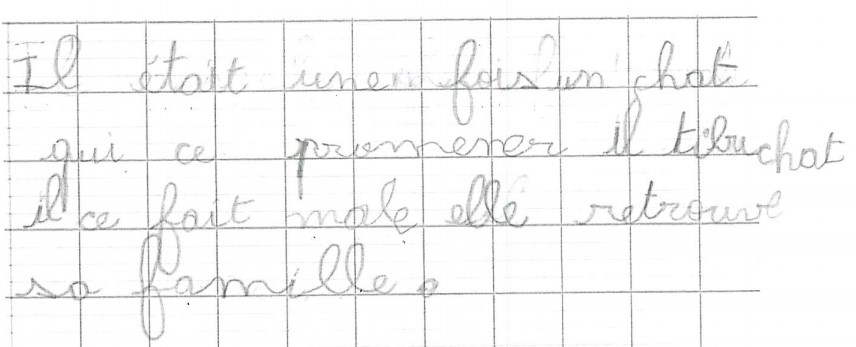 Il était une fois un chat
qui ce promener il tibuchat
il ce fait male elle retrouve
sa famille.